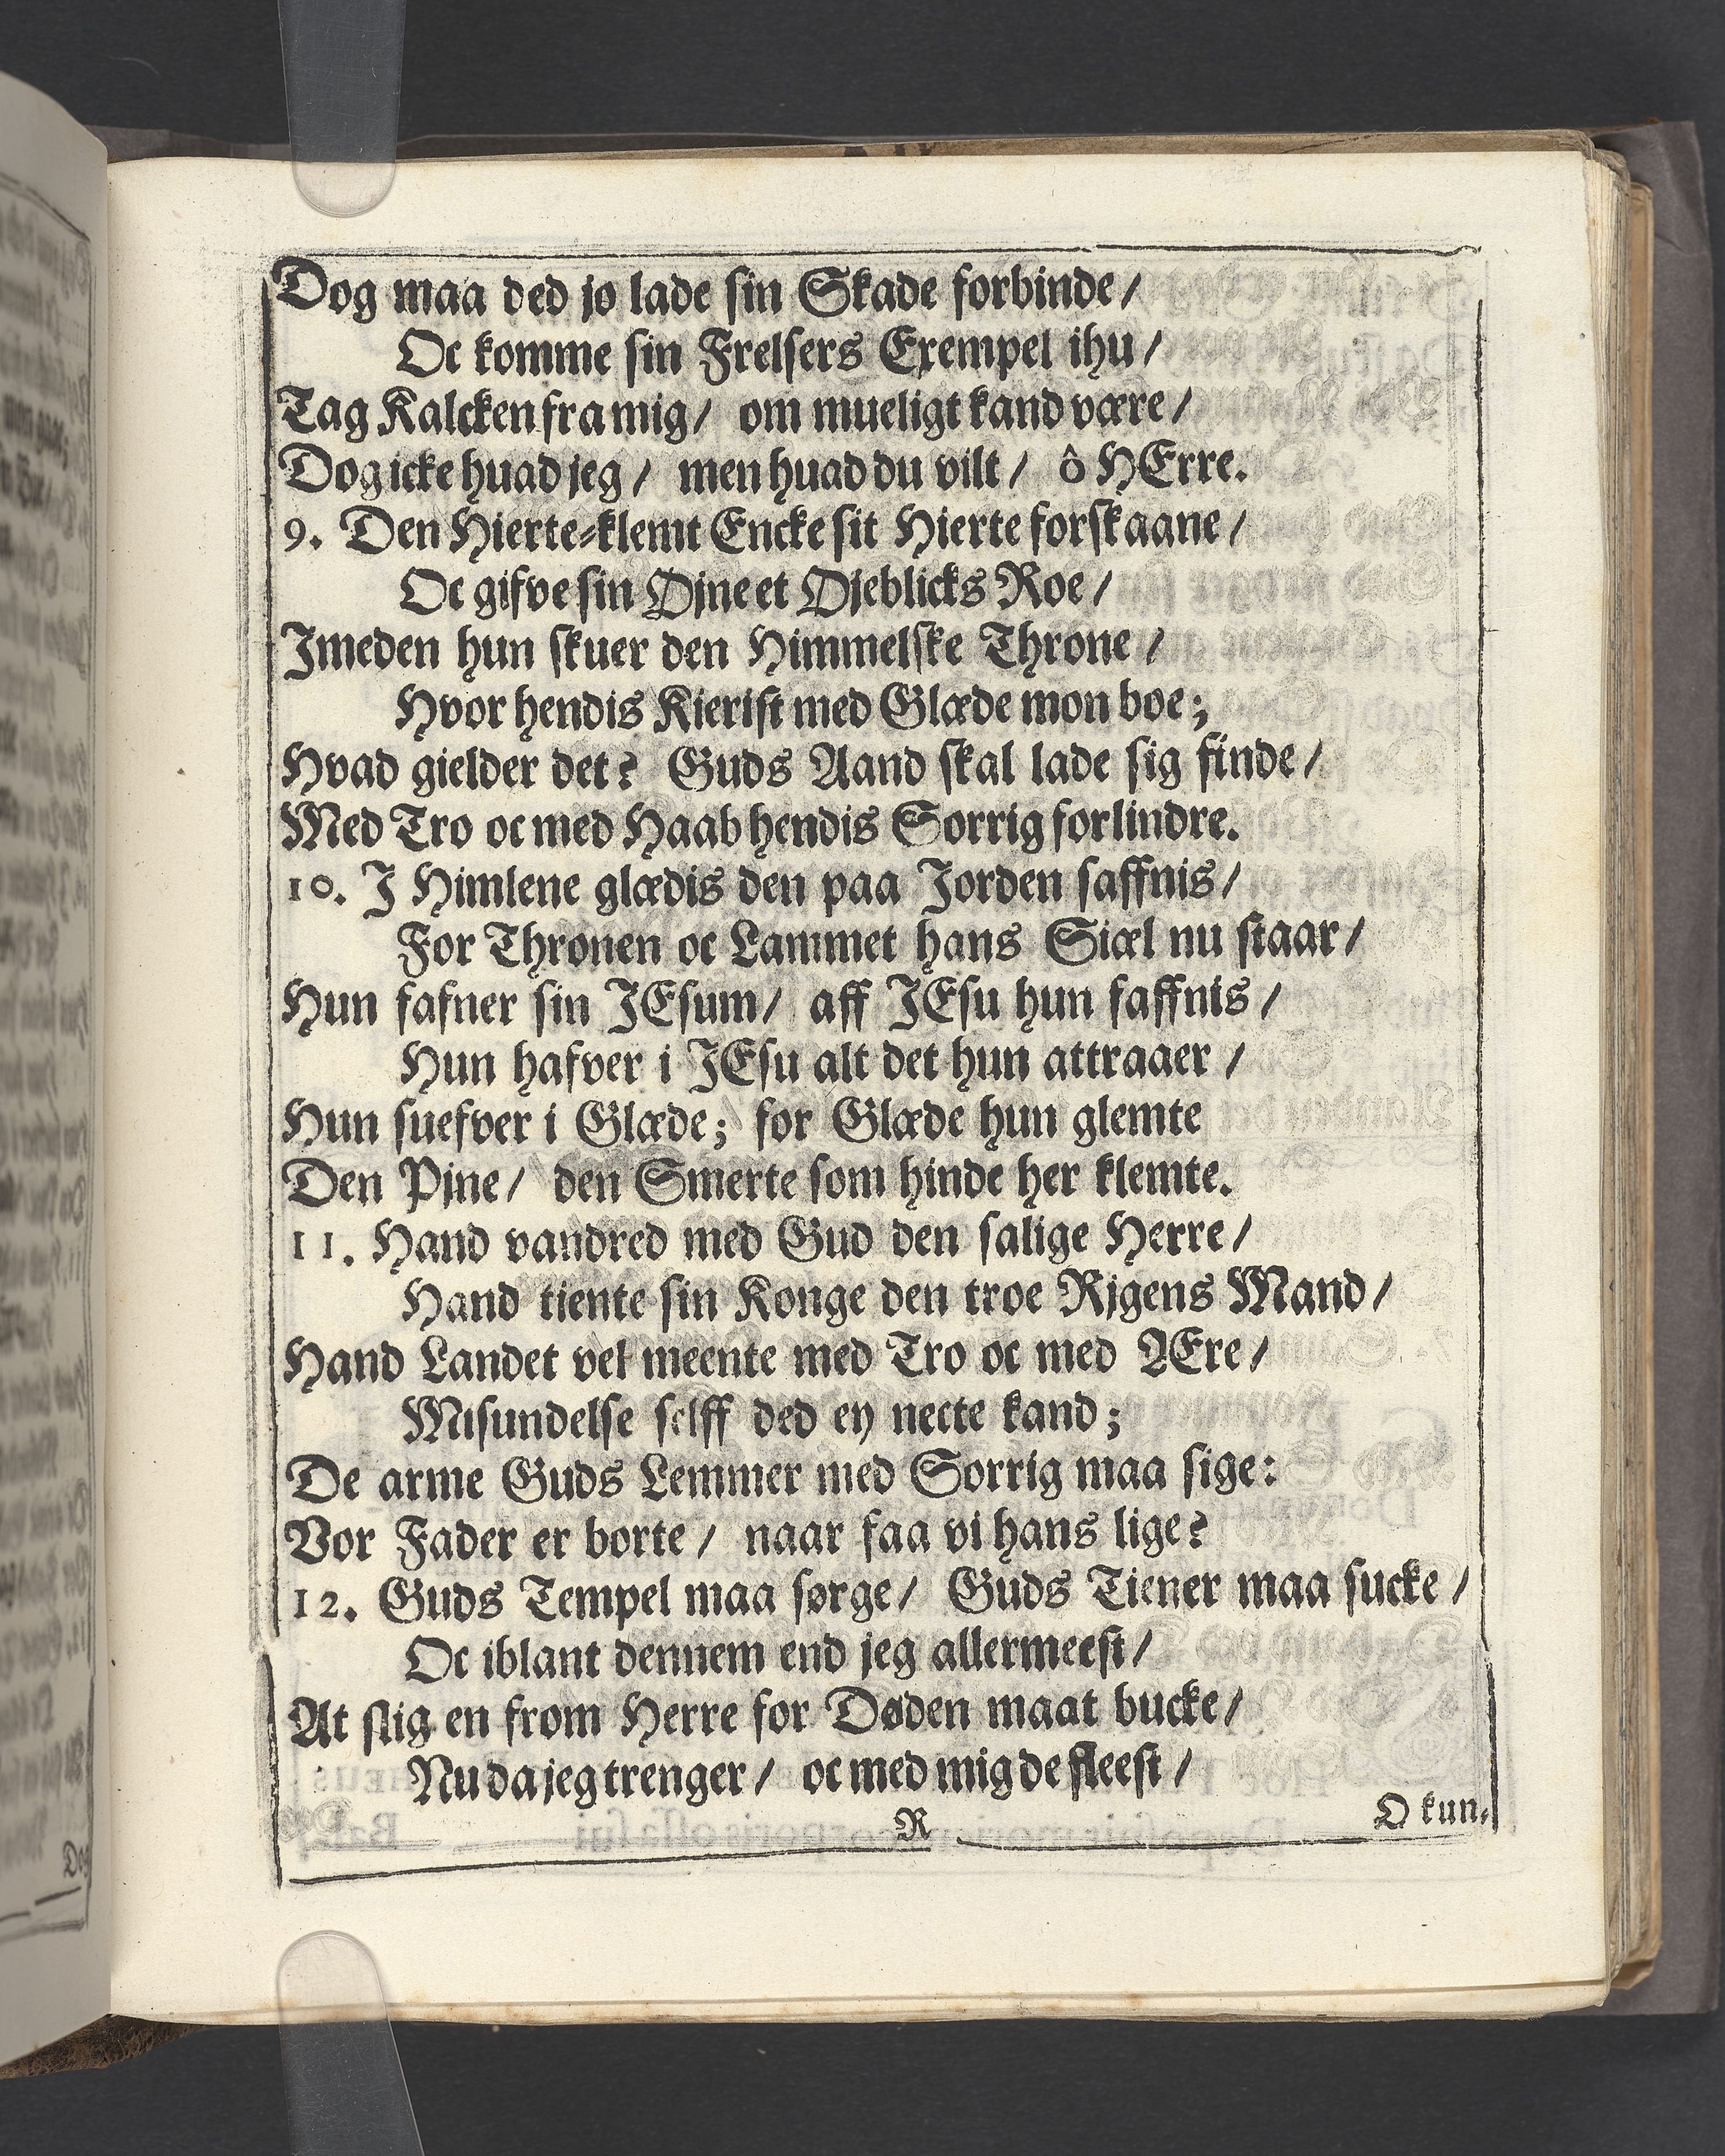 Dog maa ded jo lade sin Skade forbinde/
Oc komme sin Frelsers Exempel ihu/
Tag Kalcken fra mig/ om mueligt kand være/
Dog icke huad jeg/ men huad du vilt/ ô HErre.
9. Den Hierte-klemt Encke sit Hierte forskaane/
Oc gifve sin Øjne et Øjeblicks Roe/
Imeden hun skuer den Himmelske Throne/
Hvor hendis Kierist med Glæde mon boe;
Hvad gielder det? Guds Aand skal lade sig finde/
Med Tro oc med Haab hendis Sorrig forlindre.
10. I Himlene glædis den paa Jorden saffnis/
For Thronen oc Lammet hans Siæl nu staar/
Hun fafner sin JEsum/ aff JEsu hun faffnis/
Hun hafver i JEsu alt det hun attraaer/
Hun suefver i Glæde; for Glæde hun glemte
Den Pjne/ den Smerte som hinde her klemte.
11. Hand vandred med Gud den salige Herre/
Hand tiente sin Konge den troe Rjgens Mand/
Hand Landet vel meente med Tro oc med ÆEre/
Misundelse selff ded ey necte kand;
De arme Guds Lemmer med Sorrig maa sige:
Vor Fader er borte/ naar faa vi hans lige?
12. Guds Tempel maa sørge/ Guds Tiener maa sucke/
Oc iblant dennem end jeg allermeest/
At slig en from Herre for Døden maat bucke/
Nu da jeg trenger/ oc med mig de fleest/
R O kun-
Dog